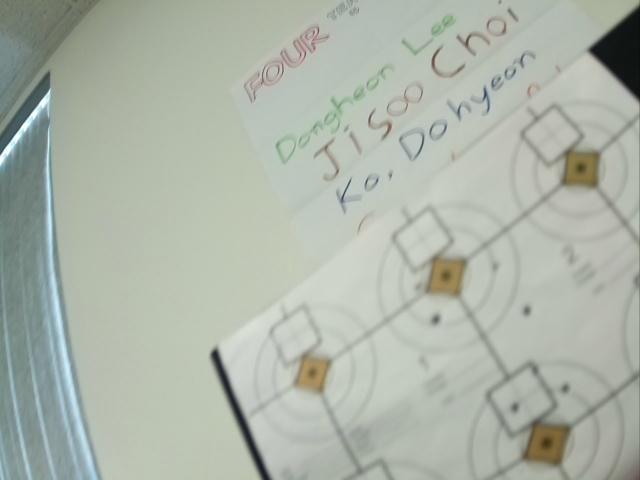 FOUR TEAM
Dongheon Lee
Ji Soo Choi
Ko, Dohyeon
1
2